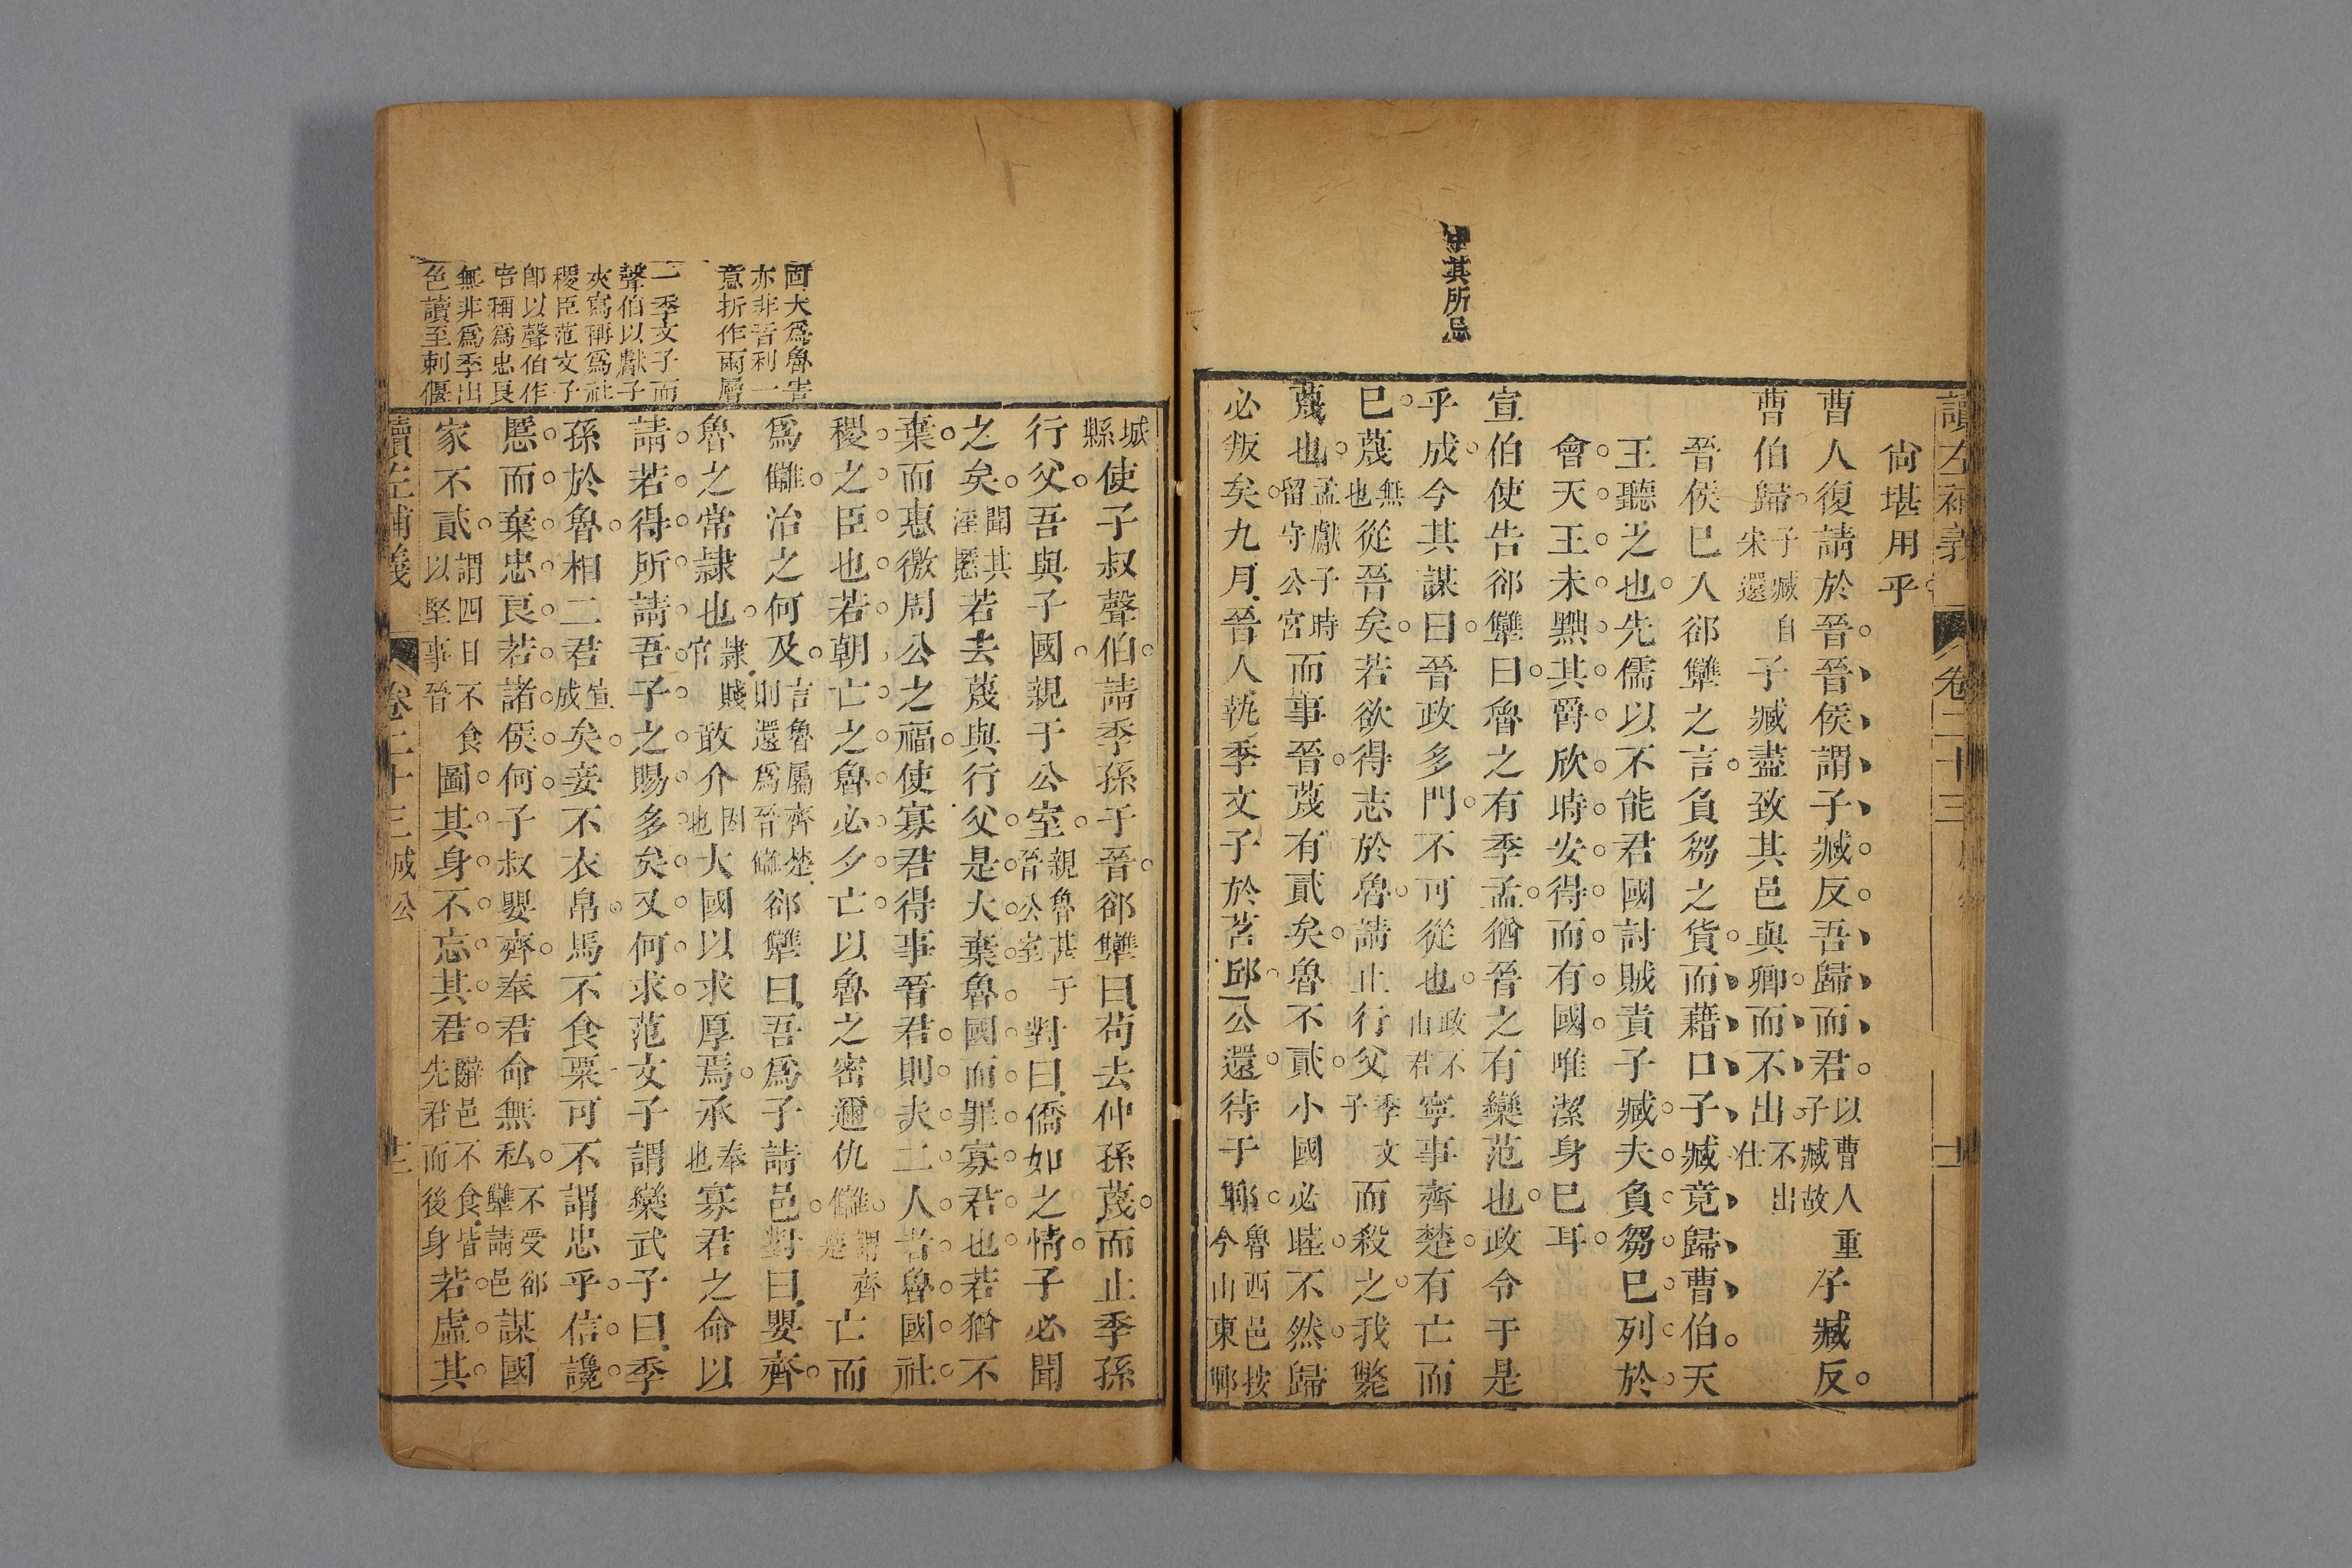 讀左補義
卷二十三
尙堪用乎
曹人復請於晉晉侯謂子臧反吾歸而君以曹人重子臧故子臧反
曹伯歸子臧自宋還子臧盡致其邑與卿而不出不出仕
晉侯已入郤犫之言負芻之貨而藉口子臧竟歸曹伯天
王聽之也先儒以不能君國討賊責子臧夫負芻已列於
會天王未黜其爵欣時安得而有國唯潔身已耳
宣伯使告郤犫曰魯之有季孟猶晉之有欒范也政令于是
乎成今其謀曰晉政多門不可從也政不由君寧事齊楚有亡而
已蔑從晉矣蔑無也若欲得志於魯請止行父季文子而殺之我斃
蔑也孟獻子時留守公宮而事晉蔑有貳矣魯不貳小國必睦不然歸
必叛矣九月晉人執季文子於苕邱公還待于鄆魯西邑按今山東鄆
中其所忌
城縣使子叔聲伯請季孫于晉郤犫曰苟去仲孫蔑而止季孫
行父吾與子國親于公室親魯甚于晉公室對曰僑如之情子必聞
之矣聞其淫慝若去蔑與行父是大棄魯國而罪寡君也若猶不
棄而惠徼周公之福使寡君得事晉君則夫二人者魯國社
稷之臣也若朝亡之魯必夕亡以魯之密邇仇讎謂齊楚亡而
爲讎治之何及言魯屬齊楚則還爲晉讎郤犫曰吾爲子請邑對曰嬰齊
魯之常隸也隸賤官敢介因也大國以求厚焉承奉也寡君之命以
請若得所請吾子之賜多矣又何求范文子謂欒武子曰季
孫於魯相二君宣成矣妾不衣帛馬不食粟可不謂忠乎信讒
慝而棄忠良若諸侯何子叔嬰齊奉君命無私不受郤犫請邑謀國
家不貳謂四日不食以堅事晉圖其身不忘其君辭邑不食皆先君而後身若虛其
固大爲魯害
亦非晉利一
意折作兩層
一季文子而
聲伯以獻子
夾寫稱爲社
稷臣范文子
卽以聲伯作
皆稱爲忠良
無非爲季出
色讀至刺偃
讀左補義
卷二十三成公